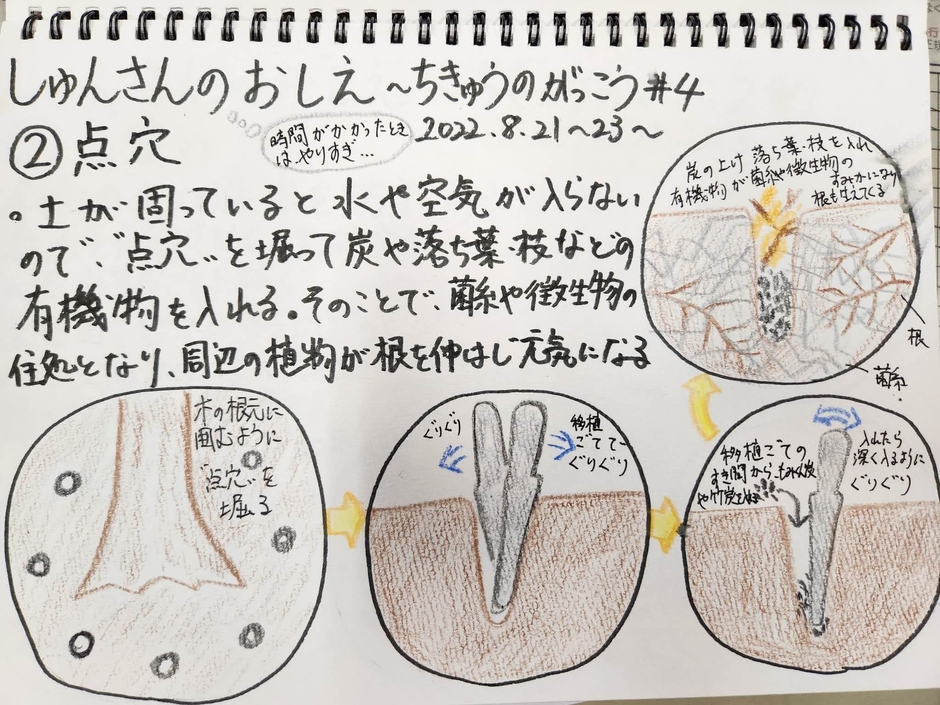 しゅんさんのおしえ～ちきゅうのがっこう#4
②点穴
時間がかかったとき
はやりすぎ…
2022.8.21～23～
。土が固っていると水や空気が入らない
ので、"点穴"を掘って炭や落ち葉・枝などの
有機物を入れる。そのことで、菌糸や微生物の
住処となり、周辺の植物が根を伸ばし元気になる
炭の上け 落ち葉・枝を入れ
有機物が菌糸や微生物の
すみかになり
根も生えてくる
根
菌糸
木の根元に
囲むように
"点穴"を
掘る
ぐりぐり
移植
ごてで
ぐりぐり
移植ごての
すき間から、もみがら炭
や竹炭を入れる
入れたら
深く入るように
ぐりぐり